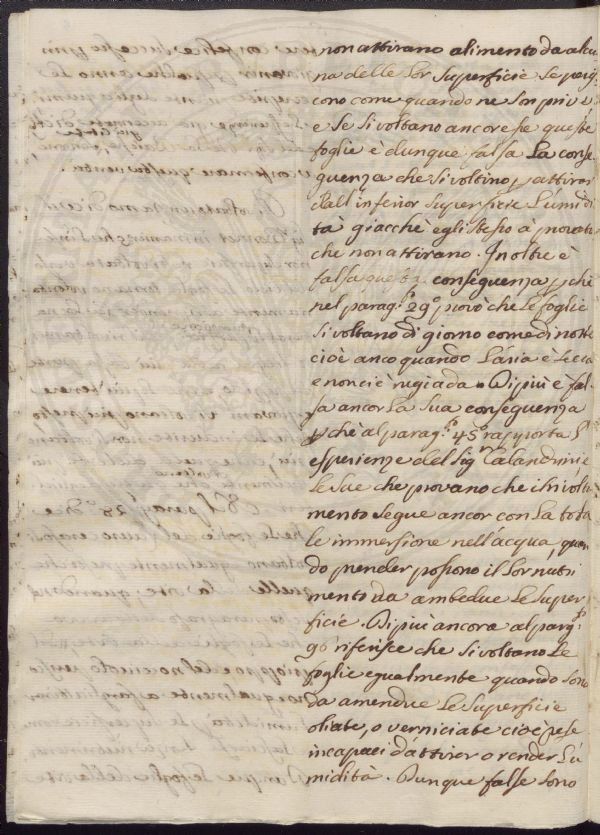 non attirano alimento da alcu
na delle lor superficie se perg
cono come quando ne son privi
e se si voltano ancorche queste
foglie è dunque falsa la conse
guenza che si voltino p attirar
dall'inferior superficie l'umidi
tà giacchè egli stesso à provato
che non attirano. Inoltre è
falsa questa conseguenza p chè
nel parag.º 29º provò che le foglie
si voltano di giorno come di notte
cioè anco quando l'aria è secca
e non cie rugiada. Di piu è fal
sa ancor la sua conseguenza
p chè al parag.º 45º rapporta l'
esperienze del sig.r Calandrini e
le sue che provano che il rivolta
mento segue ancor con la tota
le immersione nell'acqua, quan
do prender possono il lor nutri
mento da ambedue le super
ficie. Di piu ancora al parag.º
96 riferisce che si voltano le
foglie egualmente quando sono
da amendue le superficie
oliate, o verniciate cioè rese
incapaci d'attirer o render l'u
midità. Dunque false sono